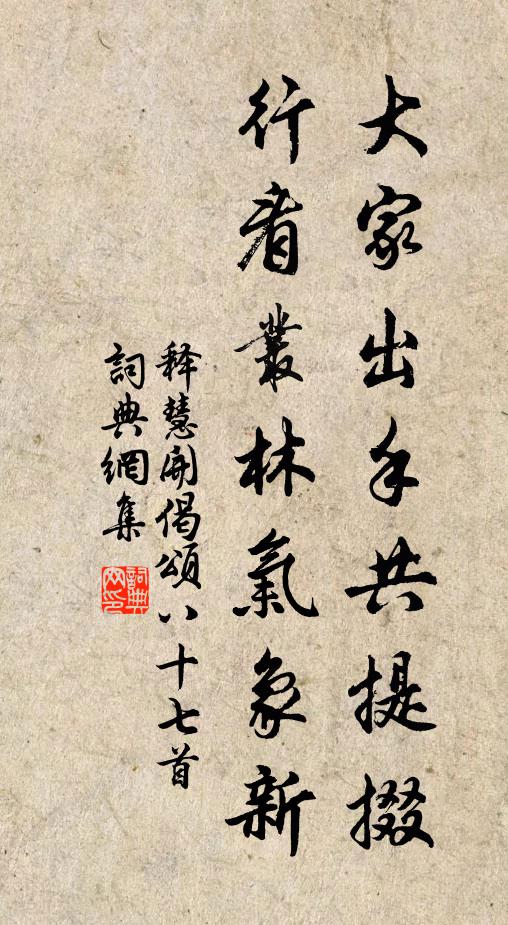 大家出手共提掇
行看叢林氣象新
释慧開偈頌八十七首
詞典網集
詞典
网印